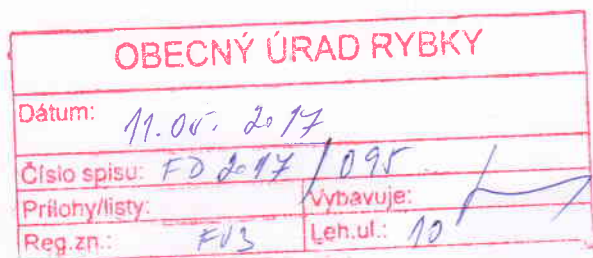 OBECNÝ ÚRAD RYBKY
Dátum: 11.05. 2017
Číslo spisu: FD 2017/095
Prílohy/listy: Vybavuje:
Reg.zn.: FV3 Leh.ul.: 10